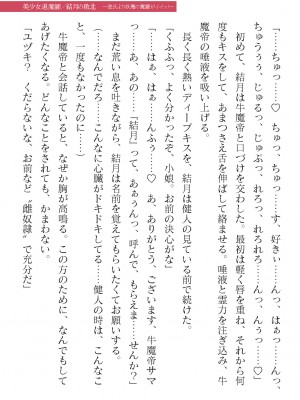 美少女退魔師・結月の敗北
「……ちゅっ……♡　ちゅっ、ちゅっ……す、好きぃ……んっ、はぁっ……んっ、
ちゅうぅぅ、じゅるっ、じゅぷっ、れろれろ、れろれろ……んっ、んぅっ……♡」
初めて、結月は牛魔帝と口づけを交わした。最初は軽く唇を重ね、それから何
度もキスをして、あまつさえ舌を伸ばして絡ませる。唾液と霊力を注ぎ込み、牛
魔帝の唾液を吸い上げる。
長く長く熱いディープキスを、結月は健人の見ている前で続けた。
「くふふっ、よく分かったぞ、小娘。お前の決心がな」
「……はぁ……はぁ……んふぅ……♡　あ、ありがとう、ございます、牛魔帝サマ
……あ、あの……「結月」って、あぁうんっ、呼んで、もらえま……せんか？」
まだ荒い息を吐きながら、結月は名前を覚えてもらいたくてお願いする。
（……どうして……こんなに心臓がドキドキしてる……健人の時は、こんなこ
となかったのに……♡）
牛魔帝と会話していると、なぜか胸が高鳴る。この方のために、なんでもして
あげたくなる。どんなことをされても、かまわない。
「ユヅキ？　くだらないな、お前など『雌奴隷』で充分だ」